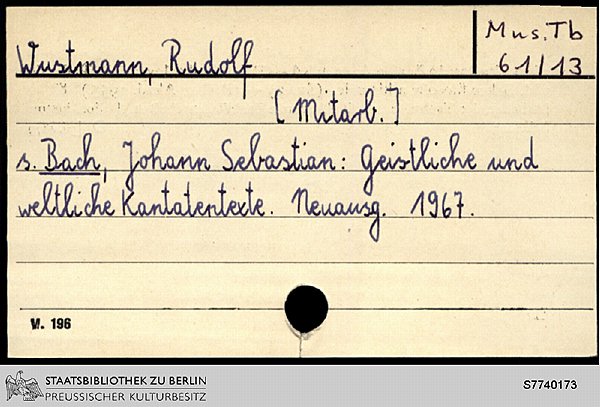 Wustmann, Rudolf
Mus. Tb
61/13
[Mitarb.]
s. Bach, Johann Sebastian: Geistliche und
weltliche Kantatentexte. Neuausg. 1967.
VI. 196
STAATSBIBLIOTHEK ZU BERLIN
PREUSSISCHER KULTURBESITZ
S7740173